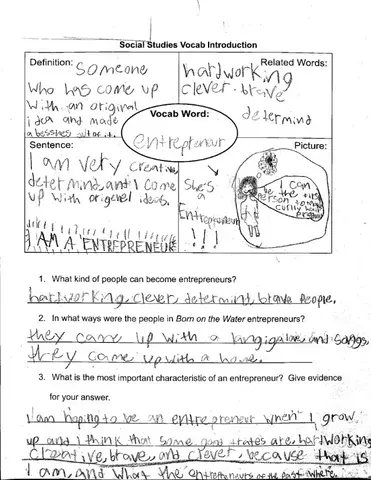 Social Studies Vocab Introduction
Definition: Someone
who has come up
with an original
idea and made
a out of it.
Related Words:
hardworking
clever. brave
determind
Vocab Word:
entrepreneur
Sentence:
I am very creative,
determind, and I come
up with origenel ideas.
I AM A ENTREPRENEUR
She's
a
Entrepreneur
!!!
Picture:
I can
be the first
person to
curly
1. What kind of people can become entrepreneurs?
hardworking, clever, determind, brave People.
2. In what ways were the people in Born on the Water entrepreneurs?
they came up with a and songs,
they came up with a home.
3. What is the most important characteristic of an entrepreneur? Give evidence
for your answer.
I am hoping to be an entrepreneur when I grow
up and I think that some good trates are, hardworking
creative, brave, and clever, because that is
I am, and what the entrepreneurs of the past where.